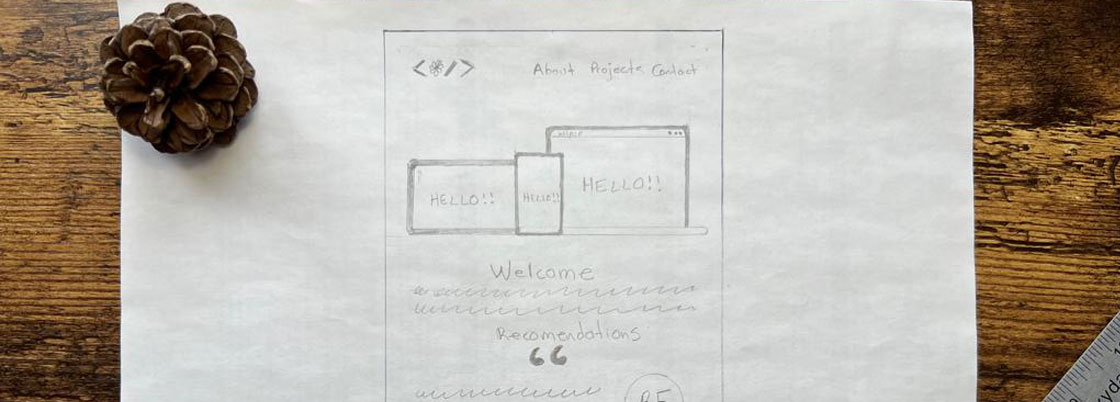 <*/> About Projects Contact
HELLO!! HELLO!! HELLO!!
Welcome
Recomendations
“